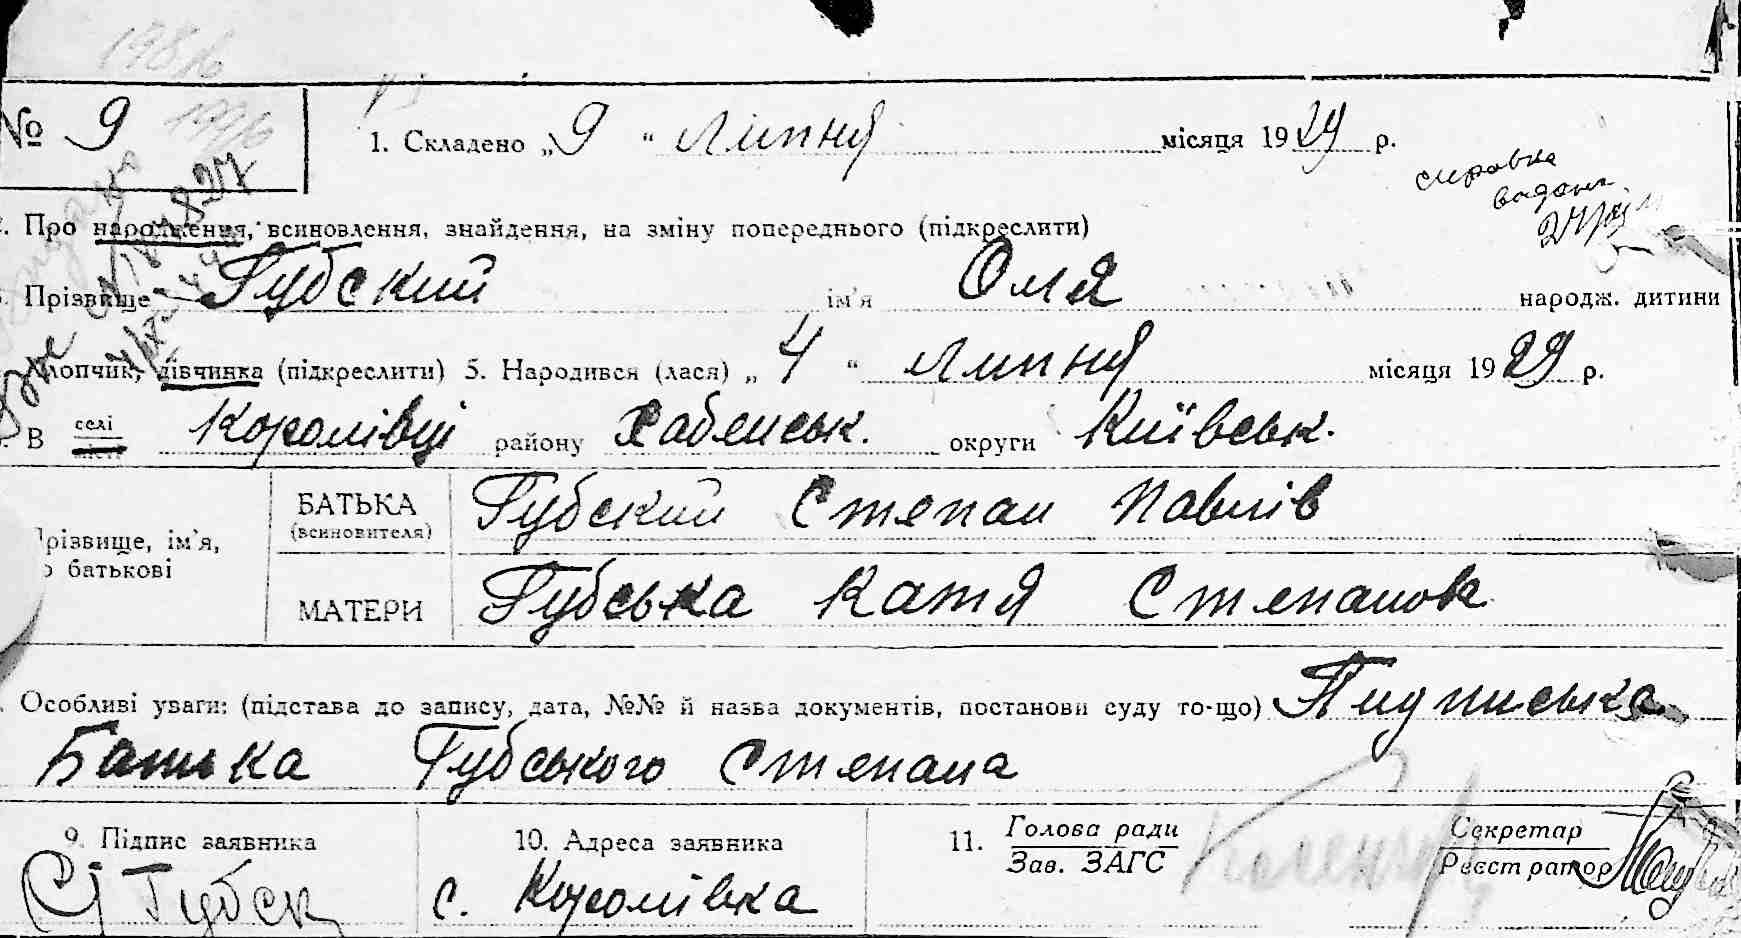 1986
1996
№ 9 1. Складено „9“ Липня місяця 1929 р.
справка
видана
Про народження, всиновлення, знайдення, на зміну попереднього (підкреслити)
Прізвище Губский ім'я Оля народж. дитини
хлопчик, дівчинка (підкреслити) 5. Народився (лася) „4“ Липня місяця 1929 р.
В селі Королівці району Хабенськ. округи Київськ.
БАТЬКА Губский Степан Павлів
(всиновителя)
Прізвище, ім'я,
по батькові
МАТЕРИ Губська Катя Степанов
Особливі уваги: (підстава до запису, дата, №№ й назва документів, постанови суду то-що) Пидписька
Батька Губського Степана
9. Підпис заявника 10. Адреса заявника 11. Голова ради Секретар
Зав. ЗАГС Реєстратор
Губск с. Королівка